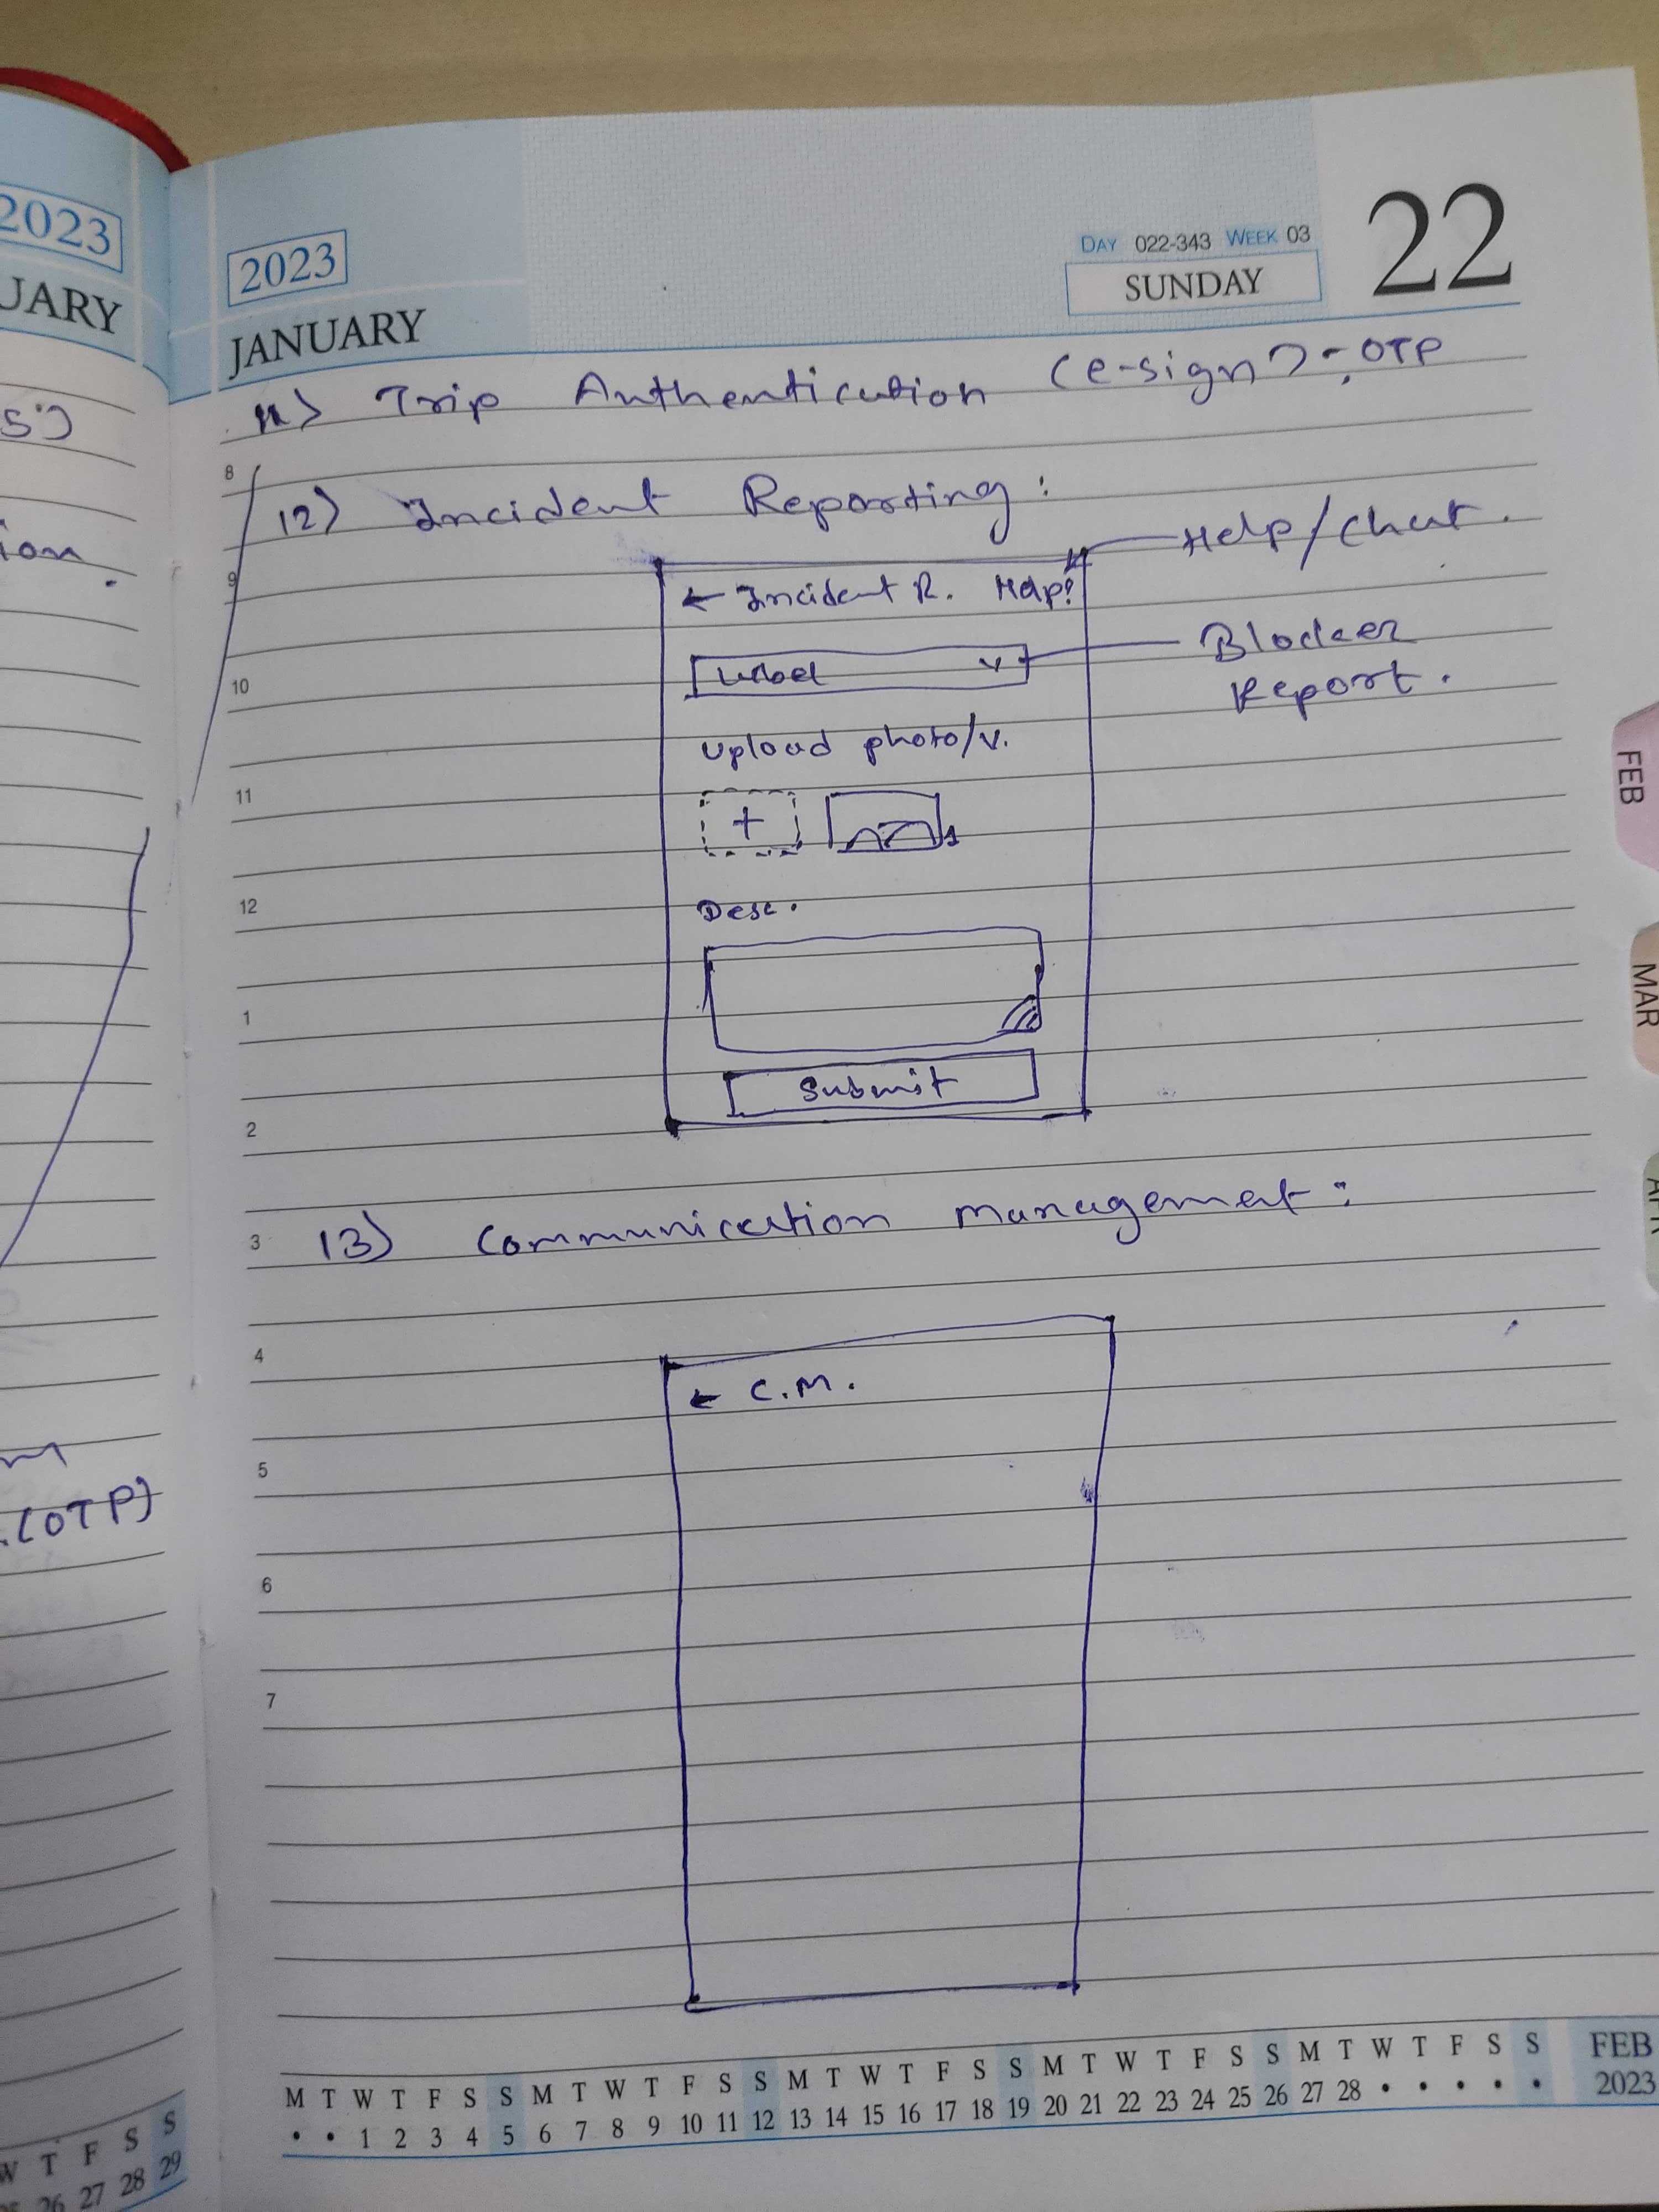 2023
UARY
2023
JANUARY
DAY 022-343 WEEK 03
SUNDAY
22
11) Trip Authentication (e-sign) :- OTP
8
12) Incident Reporting :
Help/Chat.
9
← Incident R. Help?
Blocker
Report.
10
Label v
Upload photo/v.
11
+
12
Desc.
1
Submit
2
3
13) Communication management :
4
← C.M.
5
.(OTP)
6
7
FEB
MAR
M T W T F S S M T W T F S S M T W T F S S M T W T F S S M T W T F S S FEB
• • 1 2 3 4 5 6 7 8 9 10 11 12 13 14 15 16 17 18 19 20 21 22 23 24 25 26 27 28 • • • • • 2023
W T F S S
26 27 28 29